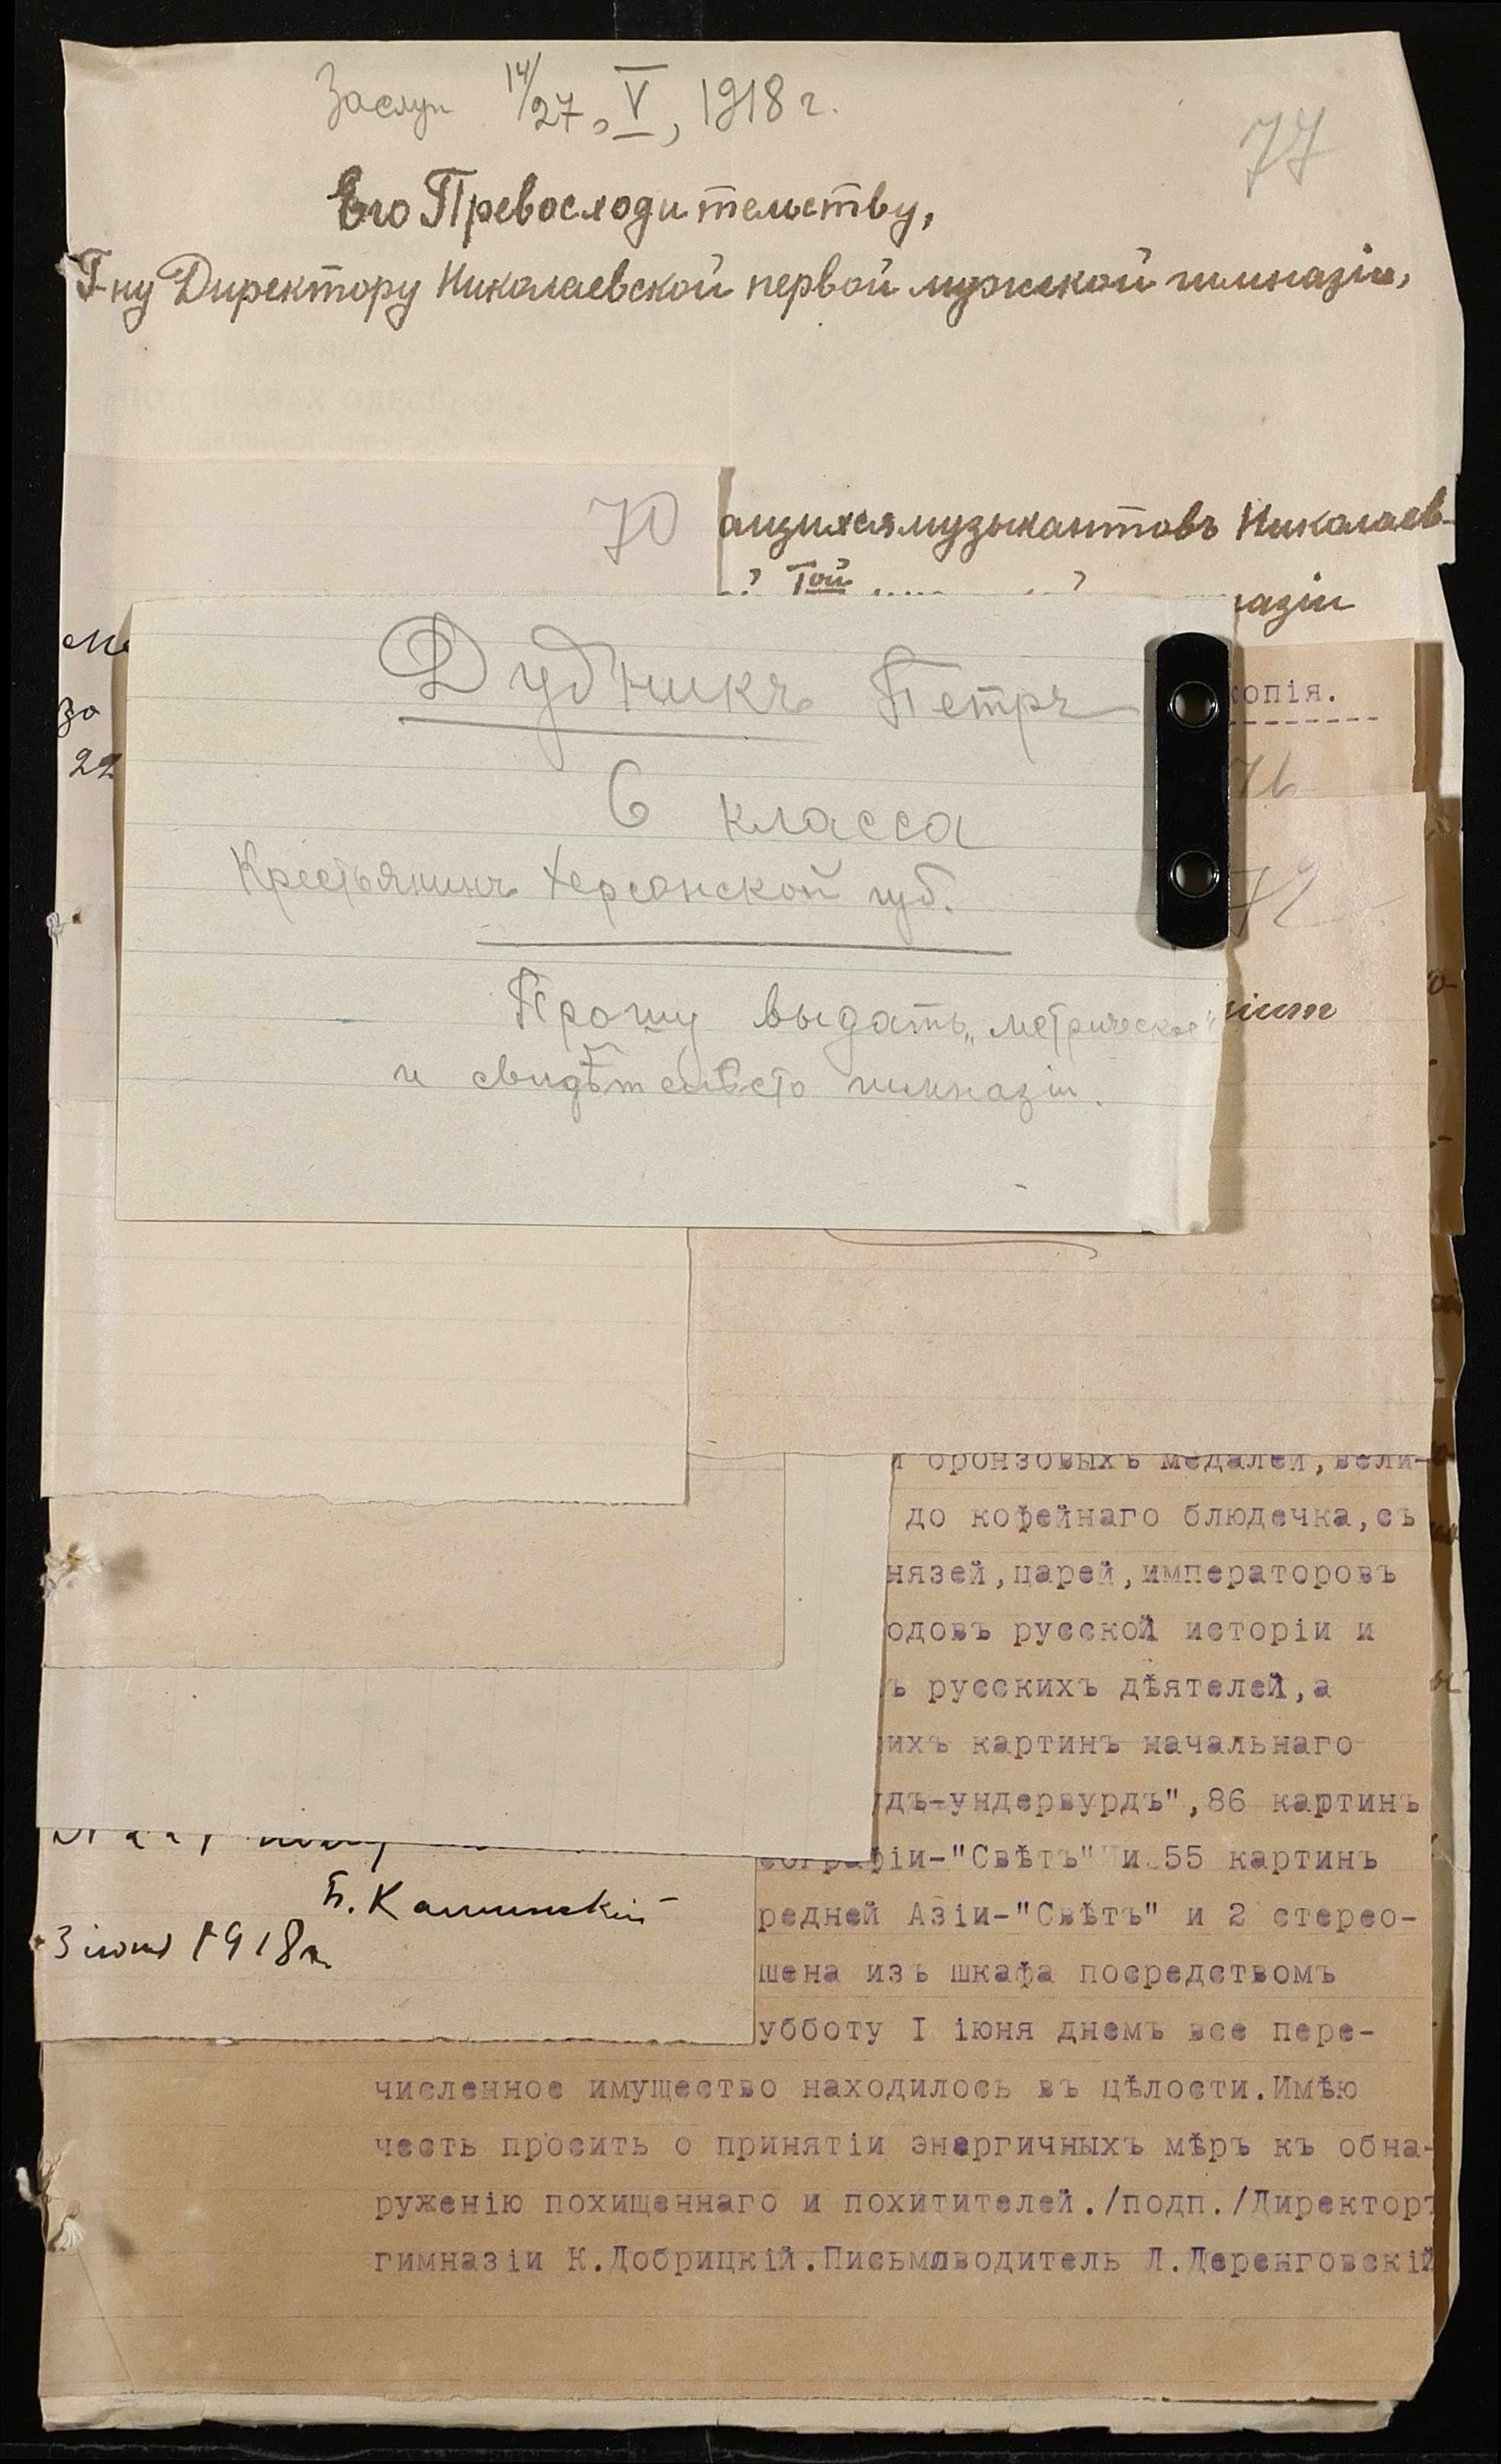 Заслуш 14/27, V, 1918 г.
77
Его Превосходительству,
Г-ну Директору Николаевской первой мужской гимназіи,
70
ащихся музыкантовъ Николаев-
ой
азіи
копія.
76
72
за
22
Дубникъ Петръ
6 класса
Крестьянинъ Херсонской губ.
Прошу выдать „метрическое"
и свидѣтельство гимназіи.
и бронзовыхъ медалей,вели-
до кофейнаго блюдечка,съ
нязей,царей,императоровъ
одовъ русской исторіи и
ъ русскихъ дѣятелей,а
ихъ картинъ начальнаго
дъ-ундервурдъ",86 картинъ
еографіи-"Свѣтъ" и 55 картинъ
Б. Каминскій
редней Азіи-"Свѣтъ" и 2 стерео-
3 іюня 1918 г.
шена изъ шкафа посредствомъ
убботу I іюня днемъ все пере-
численное имущество находилось въ цѣлости.Имѣю
честь просить о принятіи энергичныхъ мѣръ къ обна-
руженію похищеннаго и похитителей./подп./Директоръ
гимназіи К.Добрицкій.Письмоводитель Л.Деренговскій